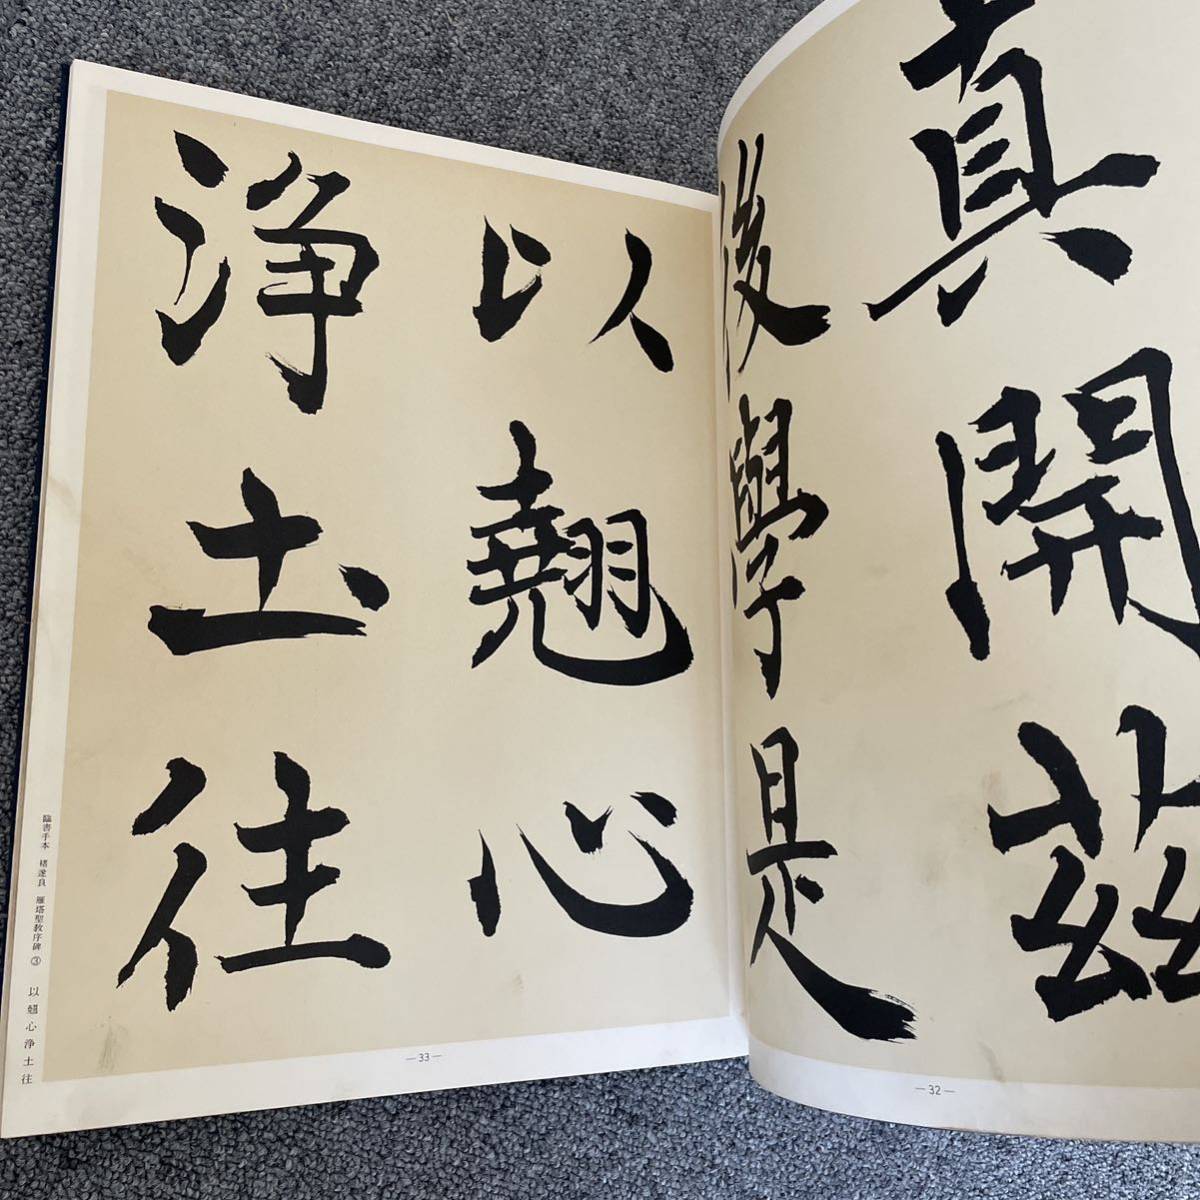 真開茲
後學是
— 32 —
以翹心
浄土往
— 33 —
臨書手本 褚遂良 雁塔聖教序碑 ③ 以翹心浄土往